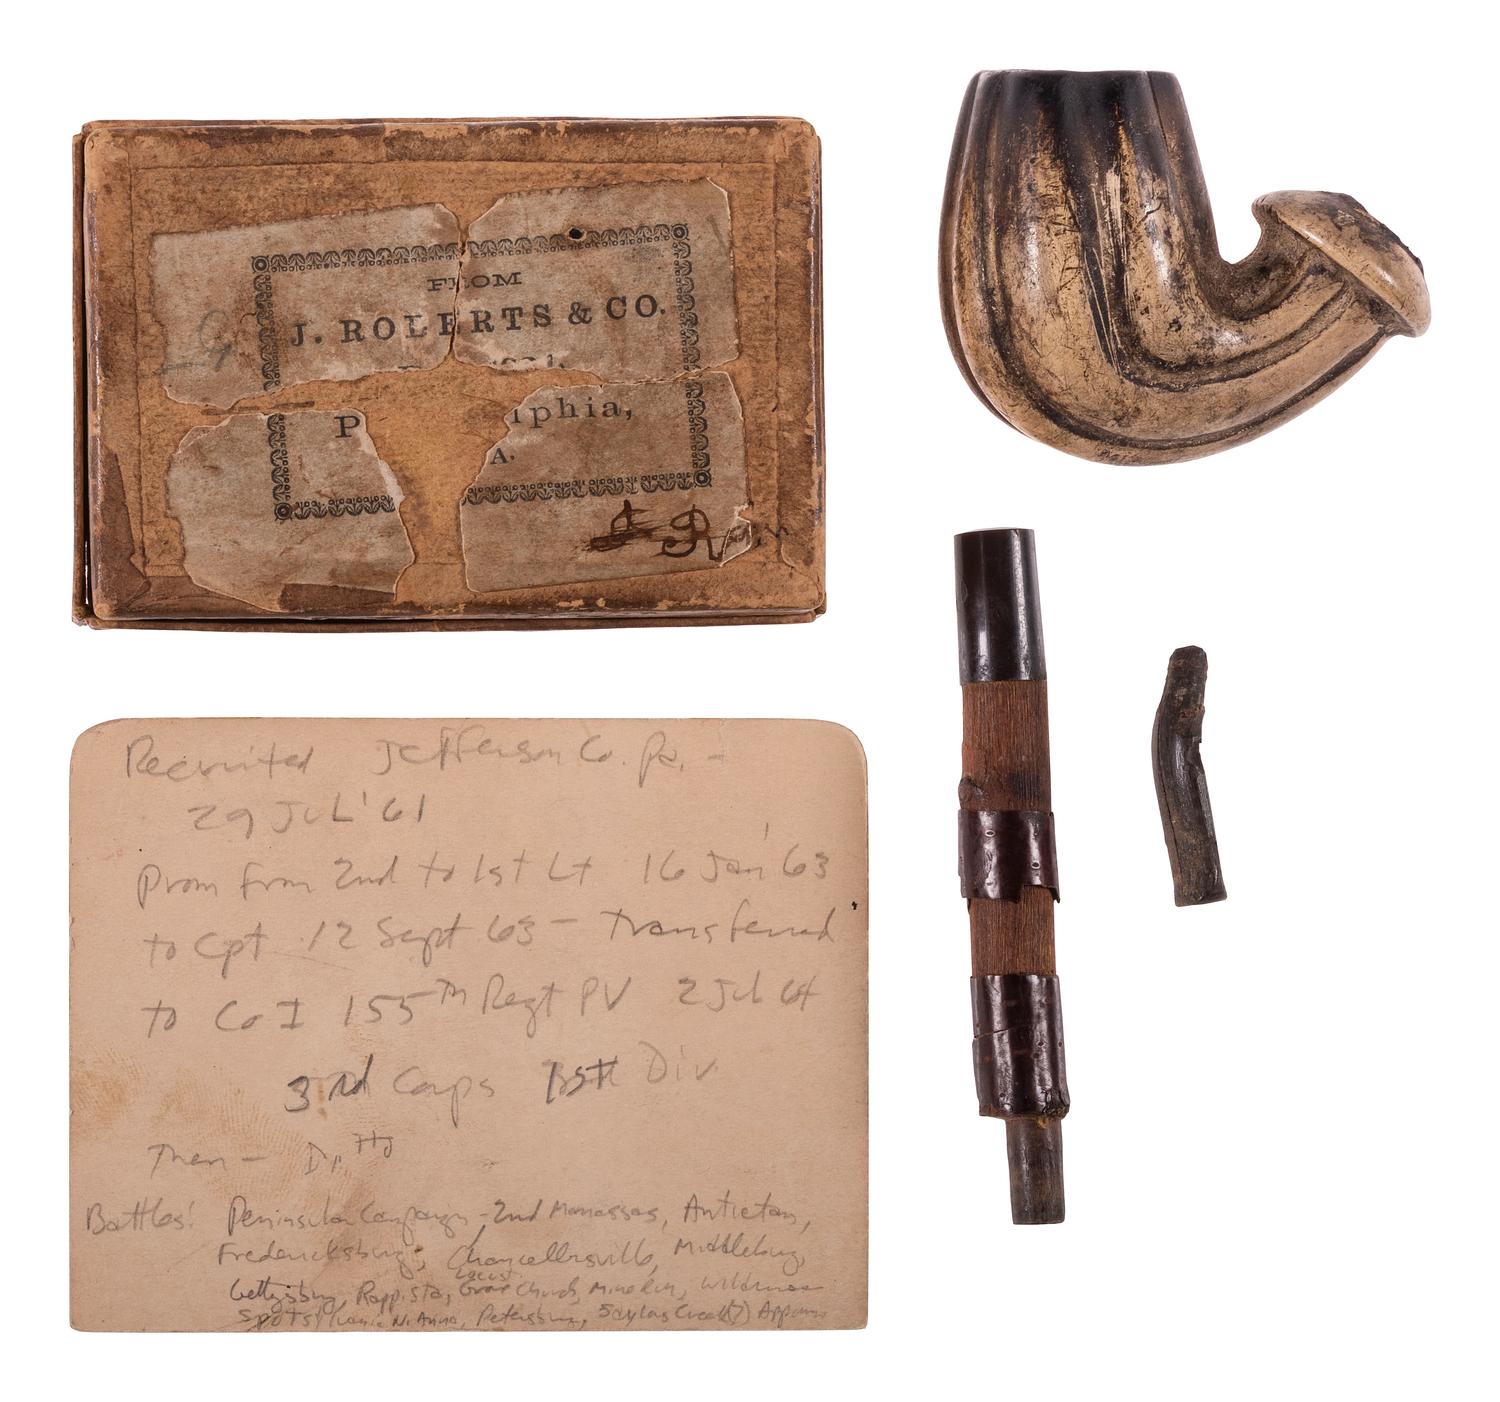 FROM
J. ROBERTS & CO.
P lphia,
A.
Recruited Jefferson Co. Pa. -
29 Jul '61
Prom from 2nd to 1st Lt 16 Jan '63
to Cpt 12 Sept 63 - transferred
to Co I 155th Regt PV 2 Jul 64
3rd Corps 1st Div
Then - Ditto
Battles: Peninsula Campaign - 2nd Manassas, Antietam,
Fredericksburg, Chancellorsville, Middleburg,
Gettysburg, Rapp. Sta, Locust Grove Church, Mine Run, Wilderness
Spotsylvania N. Anna, Petersburg, Saylors Creek (?) Appom